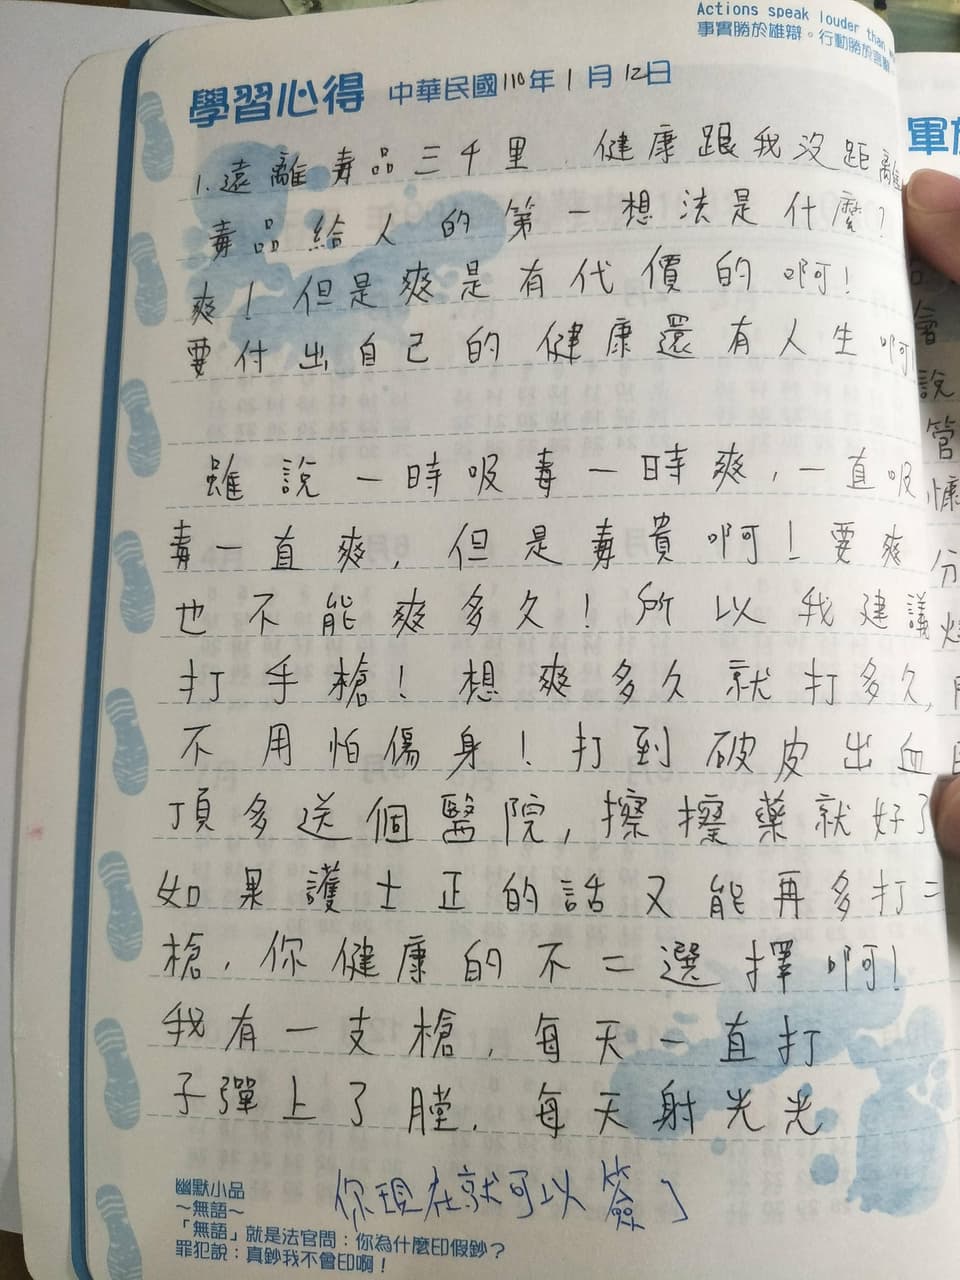 Actions speak louder than
事實勝於雄辯。行動勝於言
學習心得 中華民國110年1月12日
1.遠離毒品三千里，健康跟我沒距離
毒品給人的第一想法是什麼？
爽！但是爽是有代價的啊！
要付出自己的健康還有人生啊！
雖說一時吸毒一時爽，一直吸
毒一直爽，但是毒貴啊！要爽
也不能爽多久！所以我建議
打手槍！想爽多久就打多久，
不用怕傷身！打到破皮出血
頂多送個醫院，擦擦藥就好了
如果護士正的話又能再多打二
槍，你健康的不二選擇啊！
我有一支槍，每天一直打
子彈上了膛，每天射光光
你現在就可以簽了
幽默小品
～無語～
「無語」就是法官問：你為什麼印假鈔？
罪犯說：真鈔我不會印啊！
軍
會
說
管
慷
分